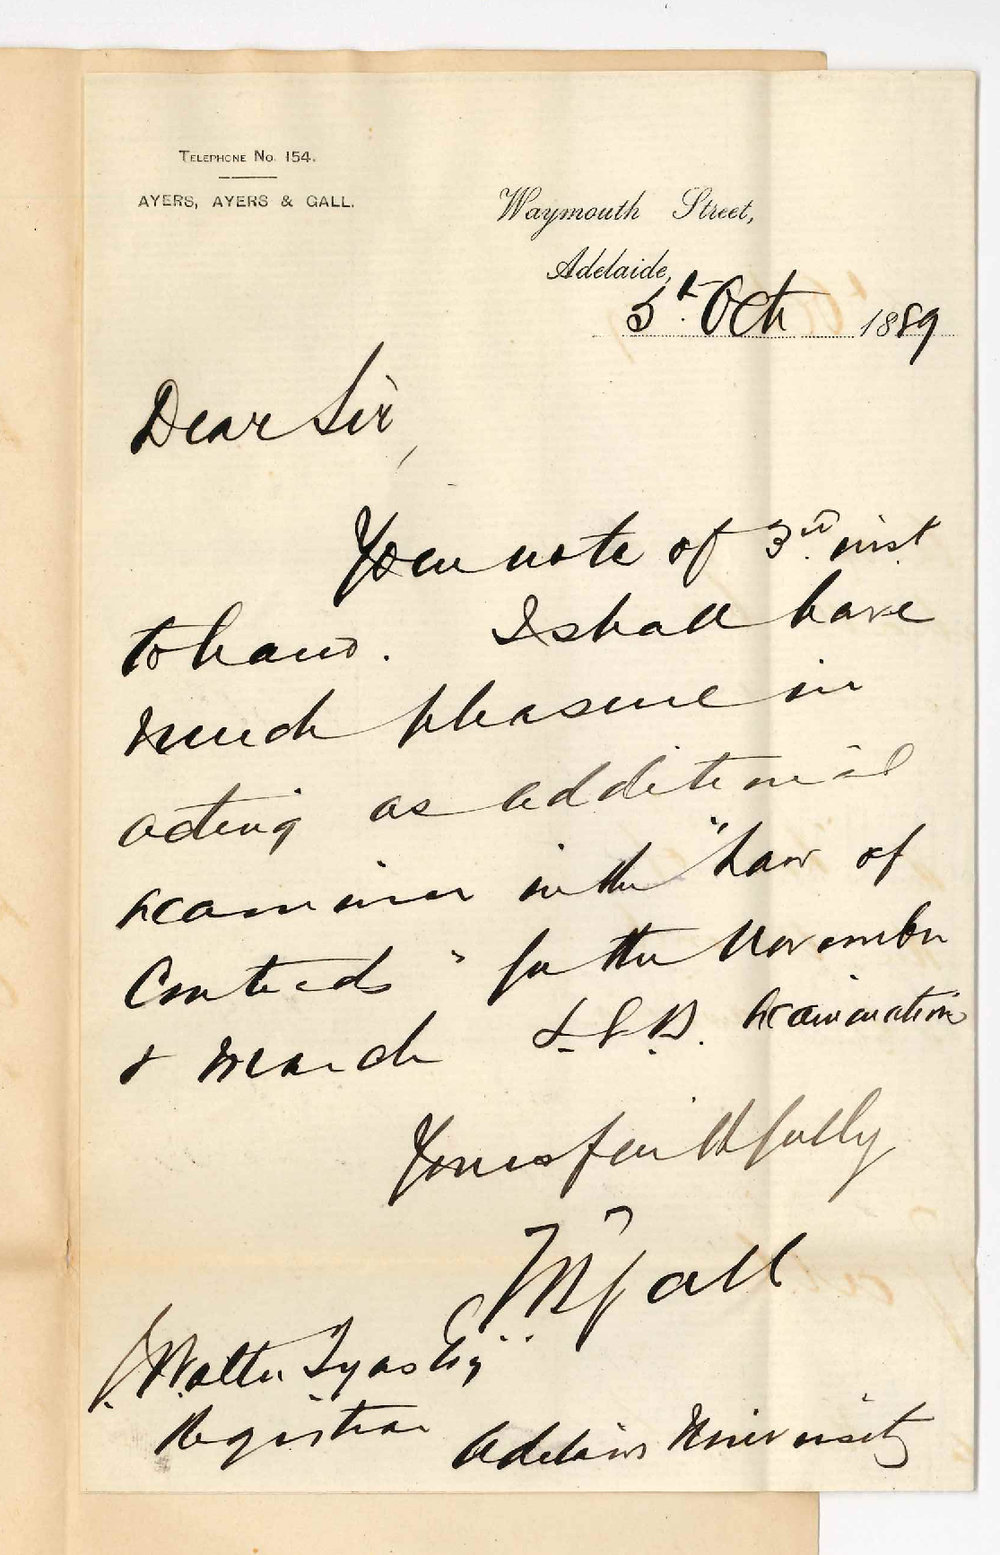 TELEPHONE No. 154.
AYERS, AYERS & GALL.
Waymouth Street,
Adelaide,
5th Oct 1889
Dear Sir,
Your note of 3rd inst
to hand. I shall have
much pleasure in
acting as additional
examiner in the "Law of
Contracts" for the November
& March L.L.B. Examination
Yours faithfully
Gall
J. Walter Tyas Esq
Registrar Adelaide University